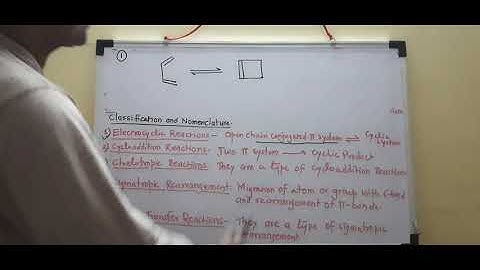 ①
Classification and Nomenclature
1) Electrocyclic Reactions - Open chain conjugated π system ⇌ Cyclic System
2) Cycloaddition Reactions - Two π system → Cyclic Product
3) Cheletropic Reactions - They are a type of cycloaddition Reactions
Rearrangement - Migration of atom or group with
and rearrangement of π-bonds
Transfer Reactions - They are a type of sigmatropic